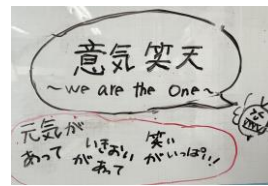 意気笑天
～we are the One～
元気が
あって
いきおい
があって
笑い
がいっぱい！